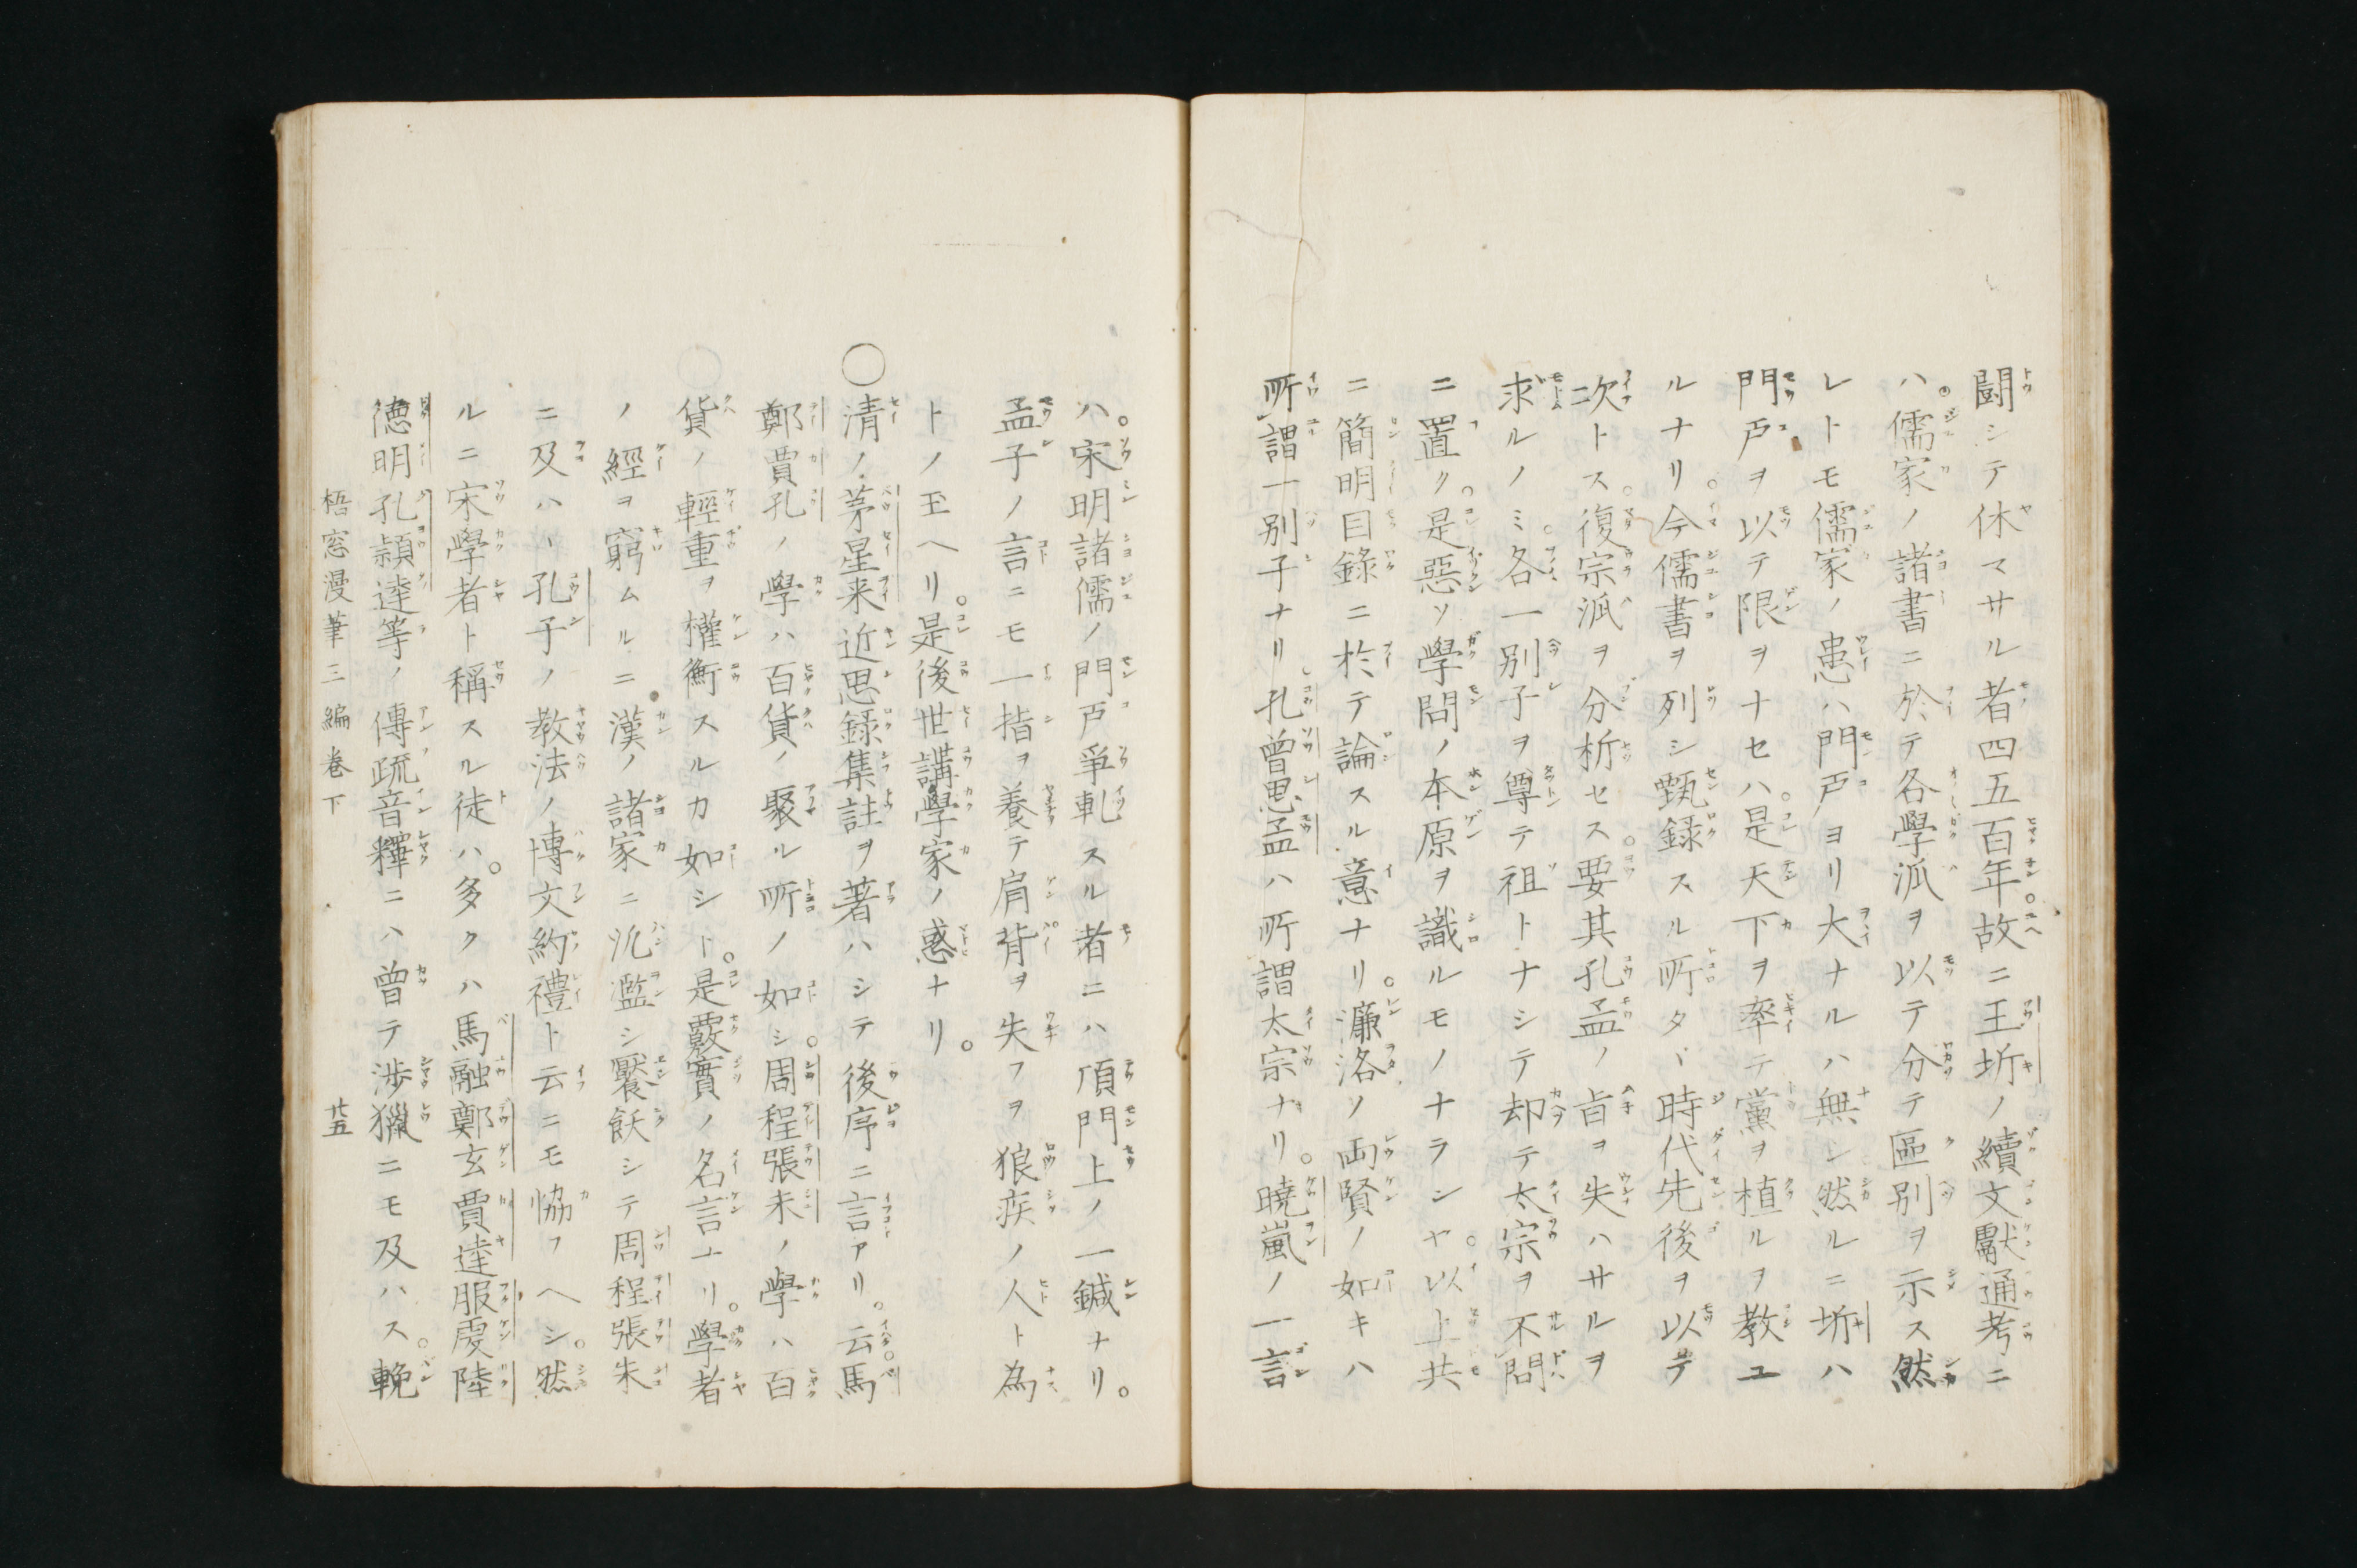 闘シテ休マサル者四五百年故ニ王圻ノ續文獻通考ニ
ハ儒家ノ諸書ニ於テ各學派ヲ以テ分テ區別ヲ示ス然
レトモ儒家ノ患ハ門戸ヨリ大ナルハ無シ然ルニ圻ハ
門戸ヲ以テ限ヲナセハ是天下ヲ率テ黨ヲ植ルヲ教ユ
ルナリ今儒書ヲ列シ甄録スル所タヾ時代先後ヲ以テ
次トス復宗派ヲ分析セス要其孔孟ノ旨ヲ失ハサルヲ
求ルノミ各一別子ヲ尊テ祖トナシテ却テ太宗ヲ不問
ニ置ク是惡ソ學問ノ本原ヲ識ルモノナランヤ以上共
ニ簡明目錄ニ於テ論スル意ナリ濂洛ノ両賢ノ如キハ
所謂一別子ナリ孔曽思孟ハ所謂太宗ナリ曉嵐ノ一言
ハ宋明諸儒ノ門戸爭軋スル者ニハ頂門上ノ一鍼ナリ。
孟子ノ言ニモ一指ヲ養テ肩背ヲ失フヲ狼疾ノ人ト為
トノ玉ヘリ是後世講學家ノ惑ナリ。
○清ノ茅星来近思録集註ヲ著ハシテ後序ニ言アリ云馬
鄭賈孔ノ學ハ百貨ノ聚ル所ノ如シ周程張朱ノ學ハ百
貨ノ輕重ヲ權衡スルカ如シト是覈實ノ名言ナリ學者
ノ經ヲ窮ムルニ漢ノ諸家ニ氾濫シ饜飫シテ周程張朱
ニ及ハヽ孔子ノ教法ノ博文約禮ト云ニモ恊フヘシ然
ルニ宋學者ト稱スル徒ハ多クハ馬融鄭玄賈逵服虔陸
德明孔頴達等ノ傳疏音釋ニハ曽テ渉獵ニモ及ハス輓
梧窓漫筆三編卷下 廿五